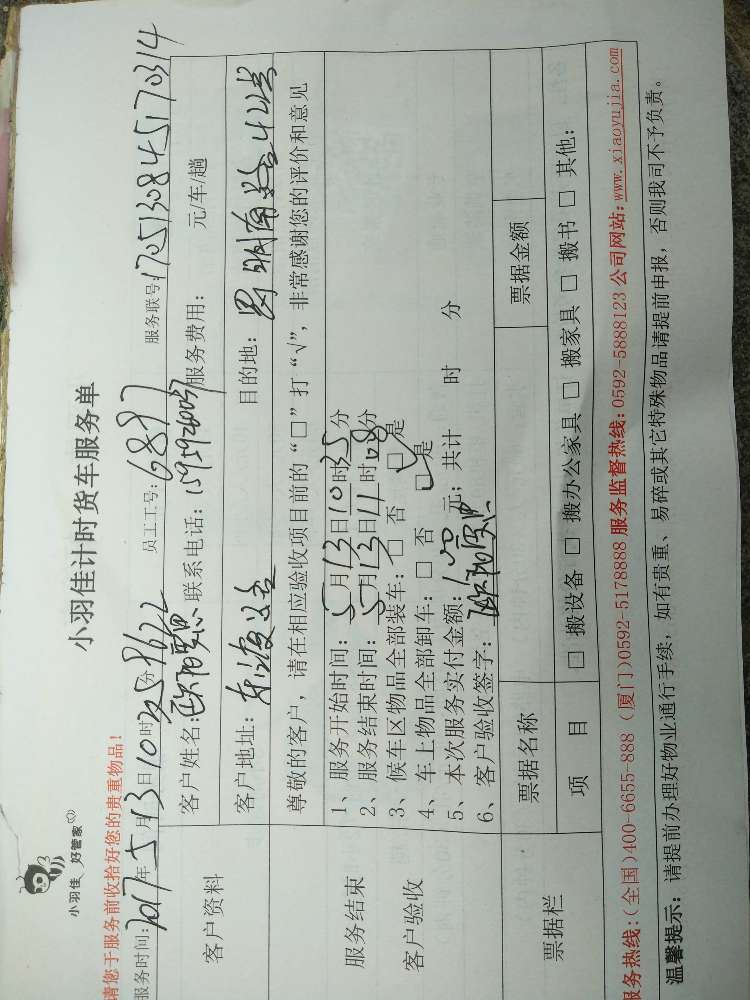 小羽佳 好管家
小羽佳计时货车服务单
请您于服务前收拾好您的贵重物品!
服务时间: 2017年5月13日10时25分 员工工号: 6897 服务联号: 17051308451 70314
客户资料
客户姓名: 欧阳 联系电话: 服务费用: 元/车/趟
客户地址: 目的地: 明南路422号
尊敬的客户，请在相应验收项目前的“□”打“√”，非常感谢您的评价和意见
服务结束
客户验收
1、服务开始时间: 5月13日10时35分
2、服务结束时间: 5月13日11时08分
3、候车区物品全部装车: □ 否 □ 是
4、车上物品全部卸车: □ 否 □ 是
5、本次服务实付金额: 元; 共计 时 分
6、客户验收签字: 欧阳
票据栏
票据名称 票据金额
项 目 □ 搬设备 □ 搬办公家具 □ 搬家具 □ 搬书 □ 其他:
服务热线:(全国)400-6655-888 (厦门)0592-5178888 服务监督热线: 0592-5888123 公司网站: www.xiaoyujia.com
温馨提示: 请提前办理好物业通行手续，如有贵重、易碎或其它特殊物品请提前申报，否则我司不予负责。